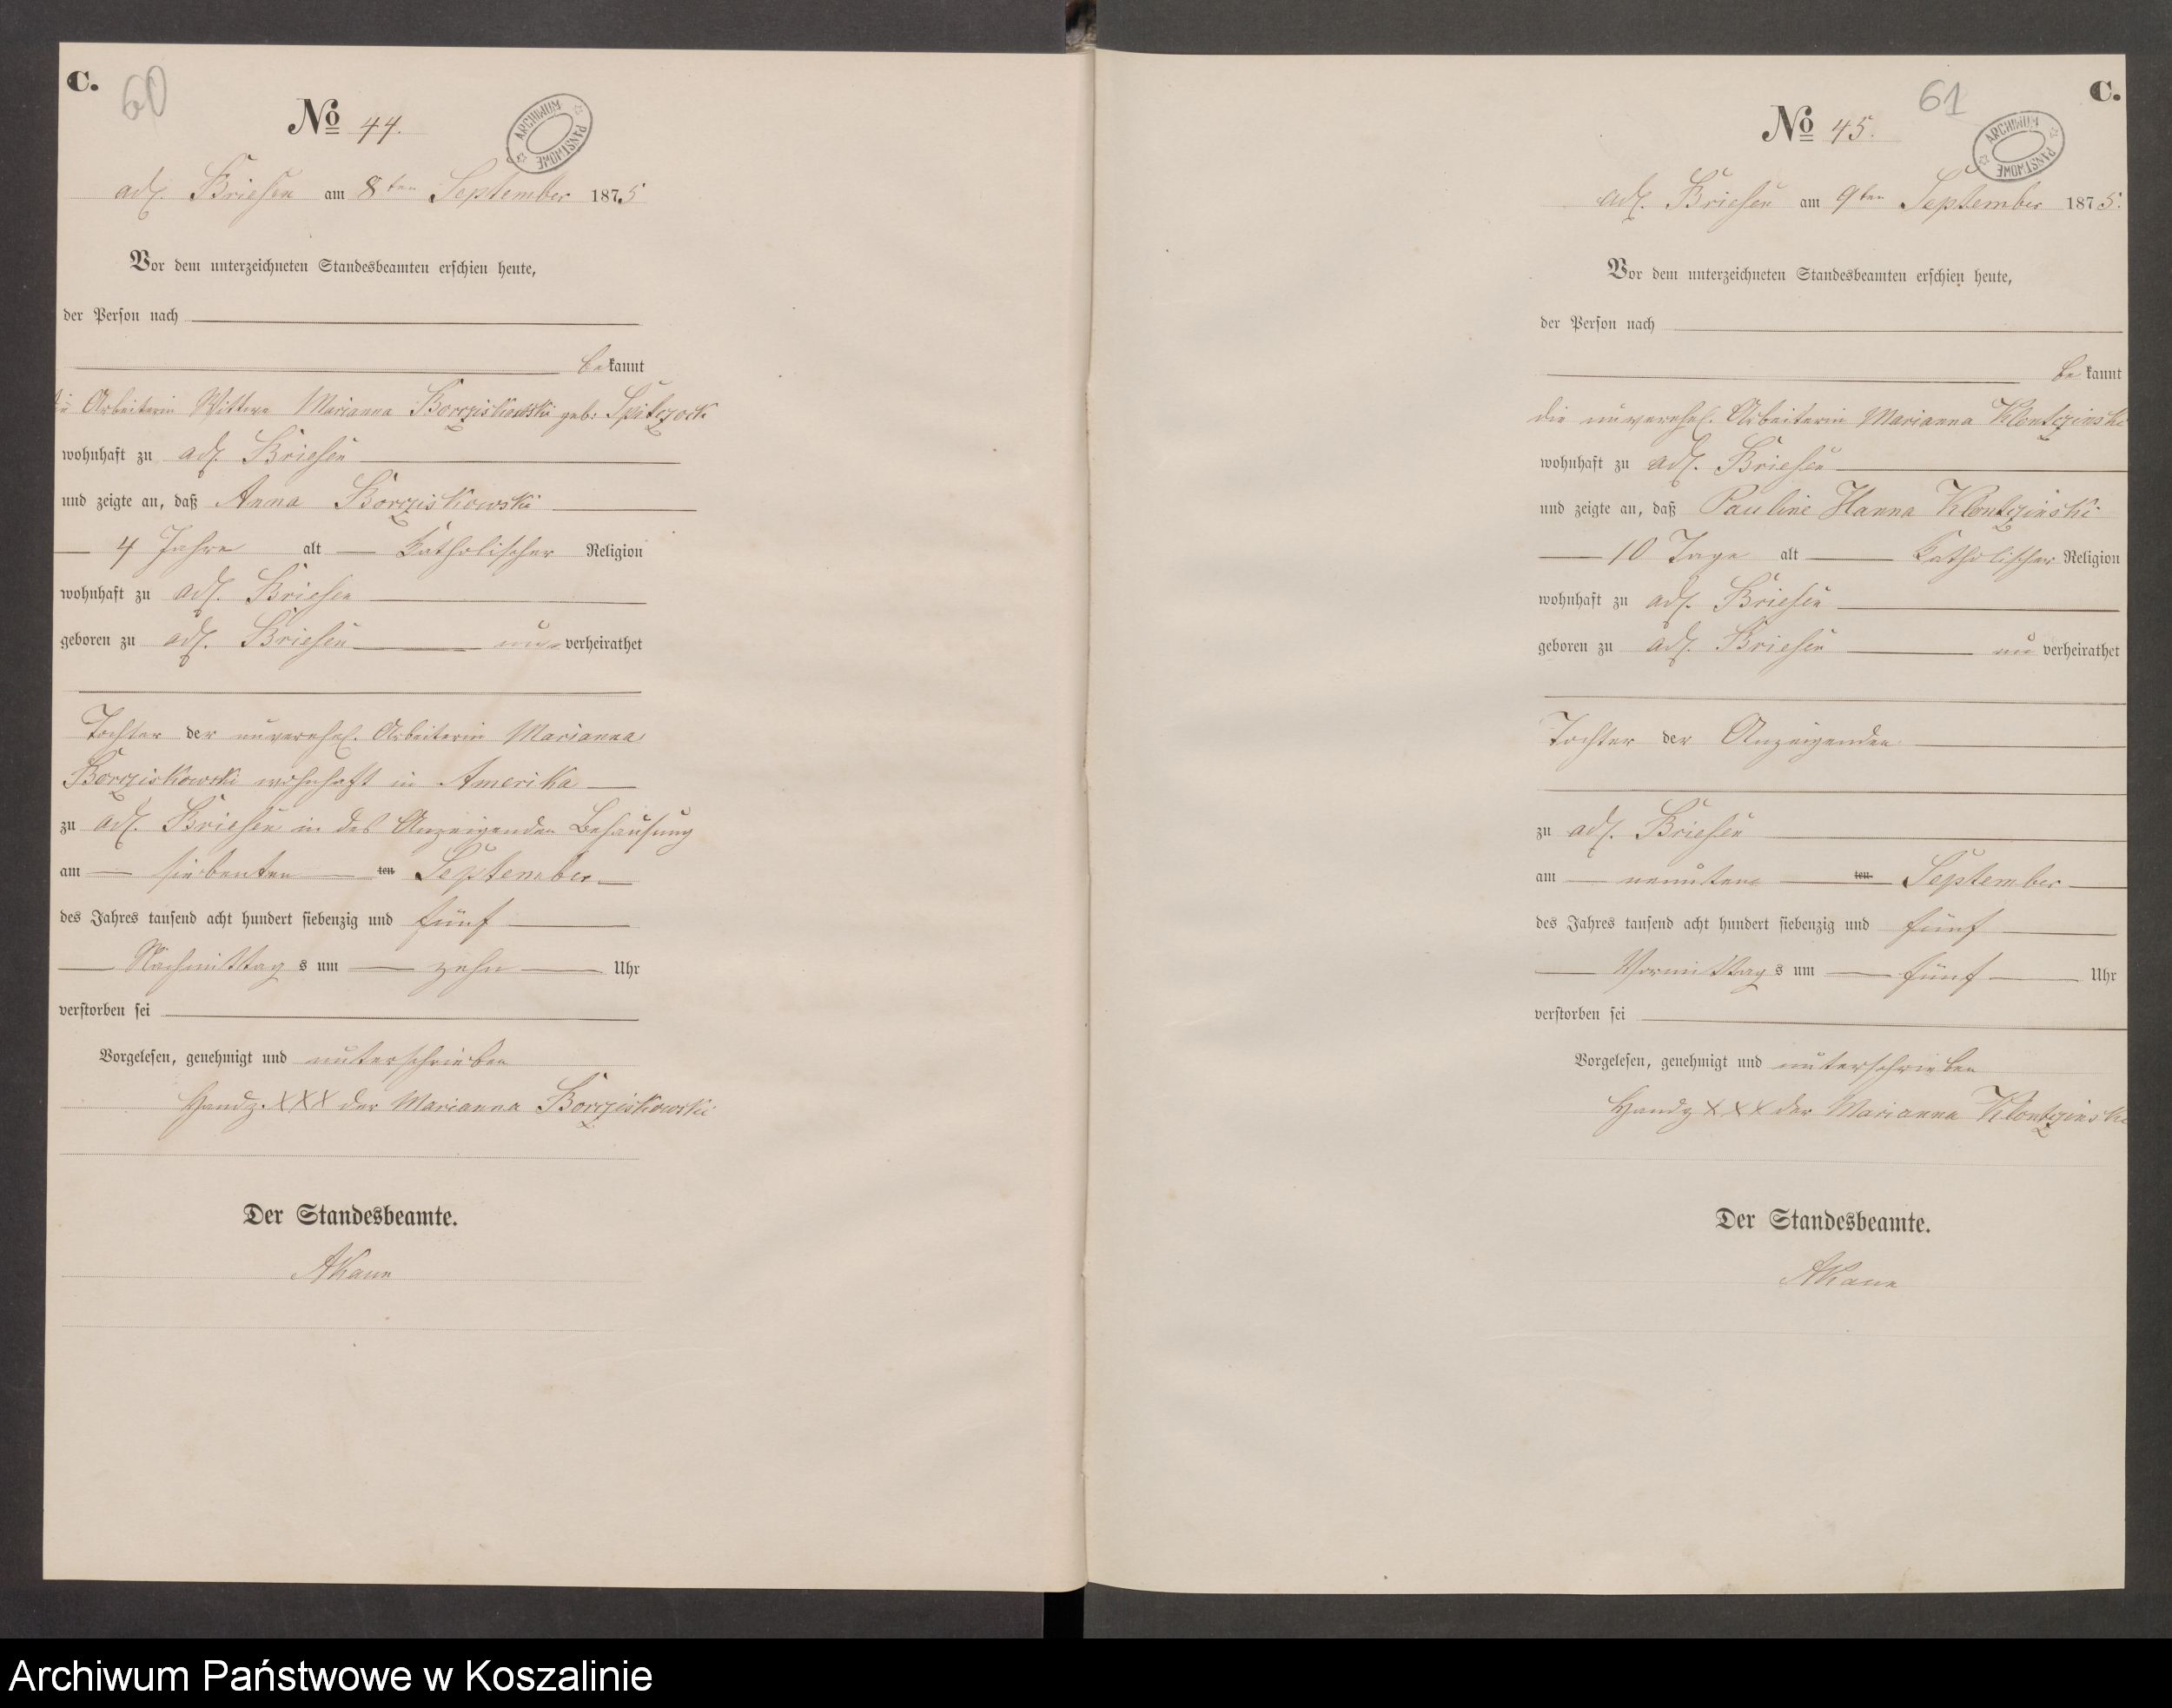 C.
60
No 44.
ARCHIWUM PAŃSTWOWE
adl. Briesen am 8ten September 1875
Vor dem unterzeichneten Standesbeamten erschien heute,
der Person nach
bekannt
die Arbeiterin Wittwe Marianna Borrziskowski geb: Spitczock
wohnhaft zu adl. Briesen
und zeigte an, daß Anna Borrziskowski
4 Jahre alt katholischer Religion
wohnhaft zu adl. Briesen
geboren zu adl. Briesen unverheirathet
Tochter der unverehel. Arbeiterin Marianna
Borrziskowski wohnhaft in Amerika
zu adl. Briesen in des Anzeigenden Behausung
am siebenten ten September
des Jahres tausend acht hundert siebenzig und fünf
Nachmittags um zehn Uhr
verstorben sei
Vorgelesen, genehmigt und unterschrieben
Handz. XXX der Marianna Borrziskowski
Der Standesbeamte.
61
C.
No 45.
ARCHIWUM PAŃSTWOWE
adl. Briesen am 9ten September 1875.
Vor dem unterzeichneten Standesbeamten erschien heute,
der Person nach
bekannt
die unverehel. Arbeiterin Marianna Klontczinski
wohnhaft zu adl. Briesen
und zeigte an, daß Pauline Hanna Klontczinski
10 Tage alt katholischer Religion
wohnhaft zu adl. Briesen
geboren zu adl. Briesen unverheirathet
Tochter der Anzeigenden
zu adl. Briesen
am neunten ten September
des Jahres tausend acht hundert siebenzig und fünf
Vormittags um fünf Uhr
verstorben sei
Vorgelesen, genehmigt und unterschrieben
Handz XXX der Marianna Klontczinski
Der Standesbeamte.
Archiwum Państwowe w Koszalinie